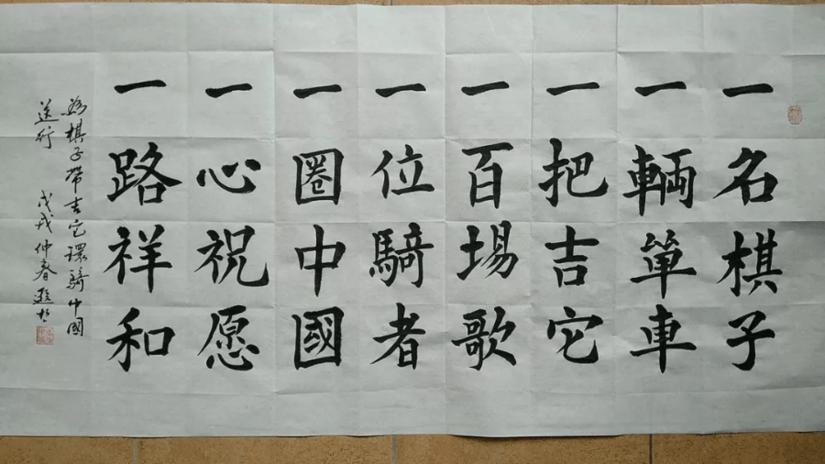 一名棋子
一輛單車
一把吉它
一百場歌
一位騎者
一圈中國
一心祝愿
一路祥和
為棋子帶吉它環騎中國
送行
戊戌仲春